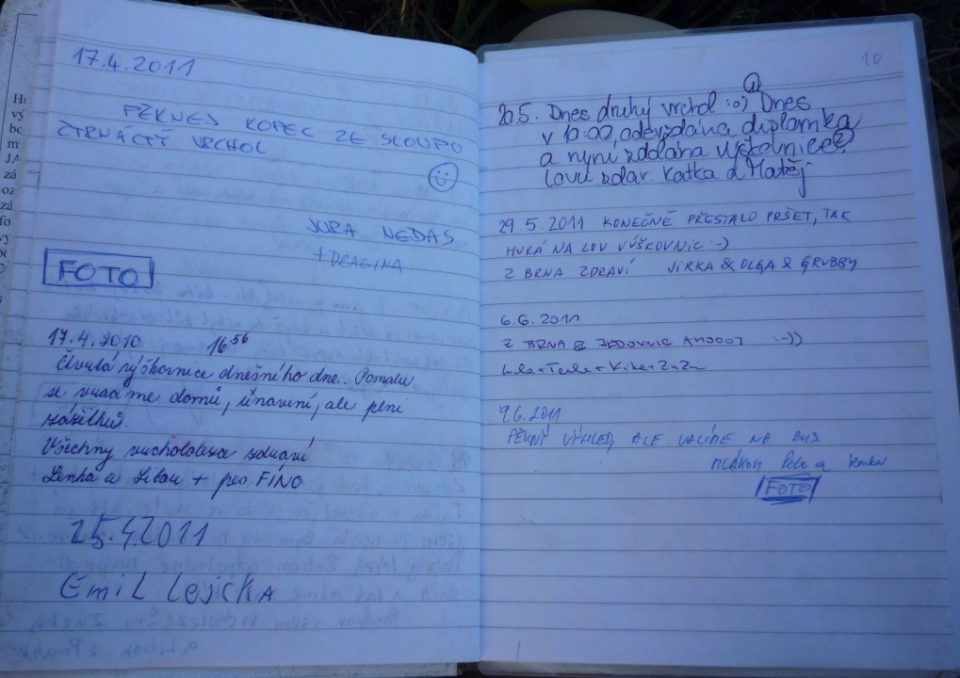 17.4.2011
PĚKNEJ KOPEC ZE SLOUPU
ČTRNÁCTÝ VRCHOL
JURA NEDAS
+ DRAGINA
FOTO
17.4.2010 16 56
výškovnice dnešního dne. Pomalu
se vracíme domů, unavení, ale plni
zážitků.
Všechny vrchololezce zdraví
Lenka a Libor + pes FÍNO
25.4.2011
Emil Lejcka
10
20.5. Dnes druhý vrchol :o) Dnes
v 10:00 odevzdána diplomka
a nyní zdolána výškovnice.
Lovu zdar. Katka a Matěj
29.5.2011 KONEČNĚ PŘESTALO PRŠET, TAK
HURÁ NA LOV VÝŠKOVNIC :-)
Z BRNA ZDRAVÍ JIRKA & OLGA & GRUBBY
6.6.2011
Z BRNA & JEDOVNIC AHOOOJ :-))
9.6.2011
PĚKNÝ VÝHLED, ALE VALÍME NA BUS
FOTO